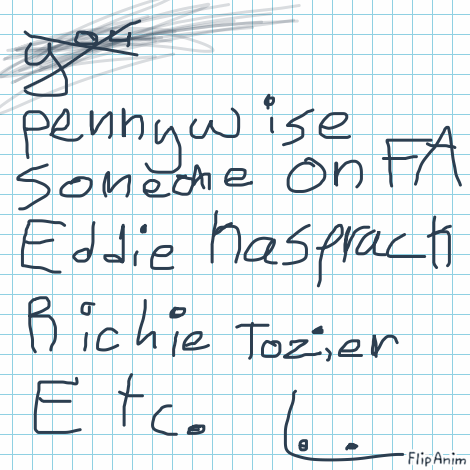 you
pennywise
Someone on FA
Eddie kasprack
Richie Tozier
Etc.
FlipAnim